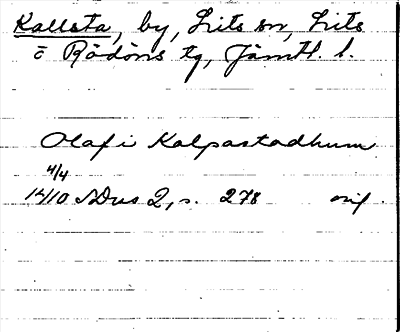 Kallsta, by, Lits sn, Lits
o Rödöns tg, Jämtl. l.
Olaf i Kalpastadhum
4/4
1410 SDns 2, s. 278 orig.